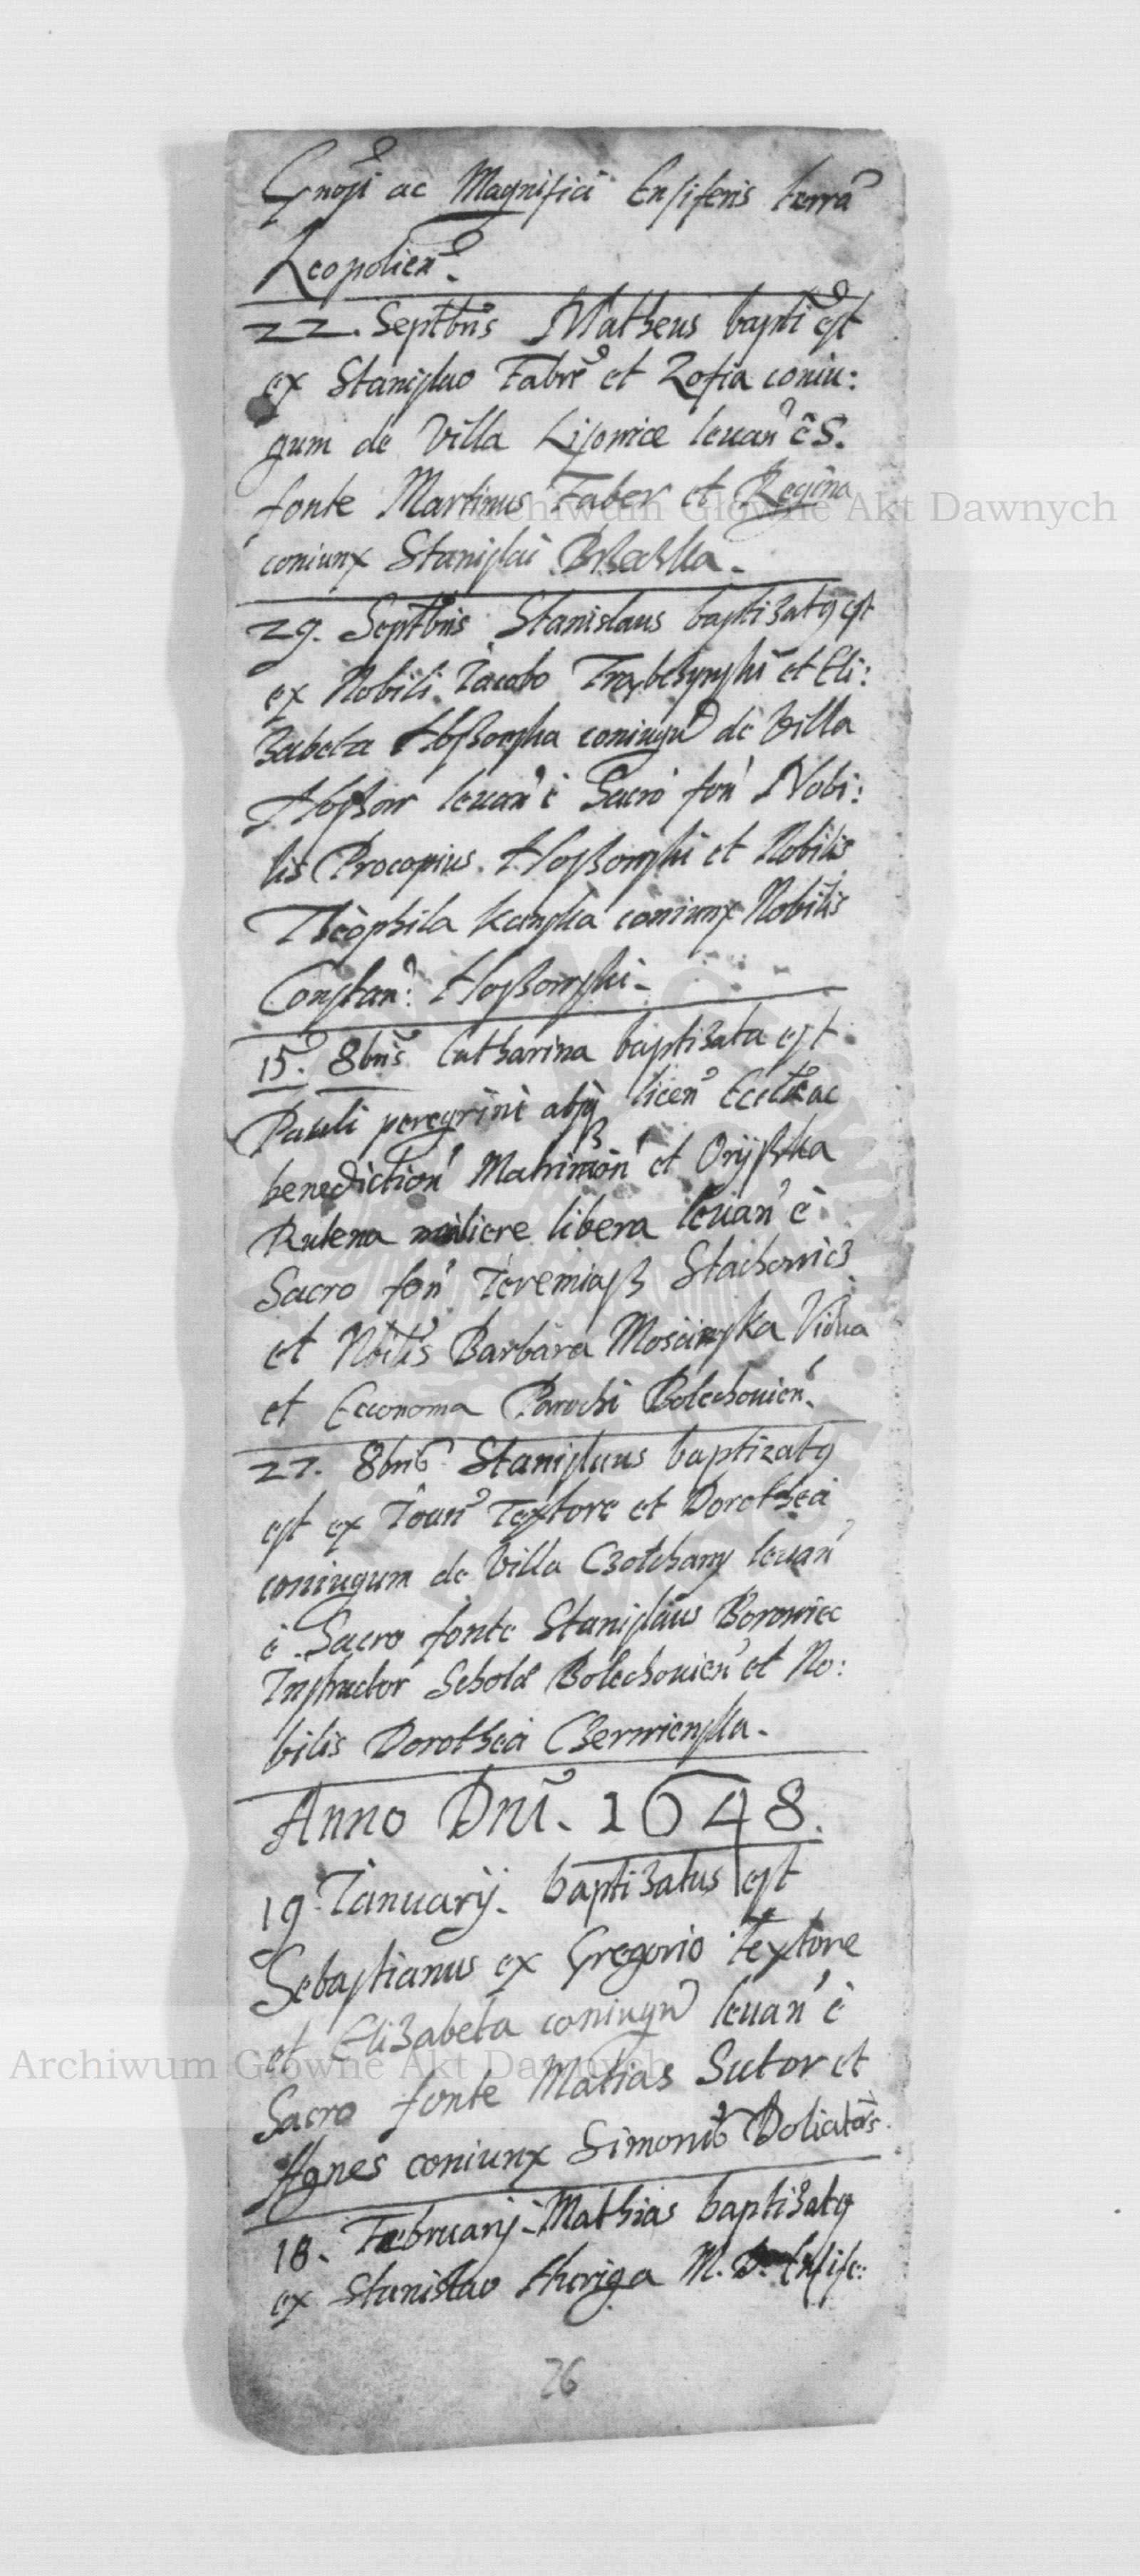 Gnosi ac Magnifici Ensiferis terrã
Leopolien.
22. Septbris Matheus bapti est
ex Stanislao Fabre et Zofia coniu:
gum de Villa Lisowice leuan è S.
fonte Martinus Faber et Regina
coniunx Stanislai
29. Septbris Stanislaus baptizatg est
ex Nobili Iacobo et Eli:
zabeta Hoszowska coniugũ de Villa
Hoszow leuan è Sacro fon Nobi:
lis Procopius Hoszowski et Nobilis
Theophila Kanska coniunx Nobilis
Constan: Hoszowski -
15. 8bris Catharina baptizata est
Pauli peregrini absq licen Eccliæ ac
benediction Matrimon et Oryszka
Rutena muliere libera leuan è
Sacro fon Ieremiasz Stachowicz
et Nbilis Barbara Mosciñska Vidua
et Economa Parochi Bolechouien.
27. 8bris Stanislaus baptizatg
est ex Ioan Textore et Dorothea
coniugum de Villa Czolchany leuan
è Sacro fonte Stanislaus Borowiec
Instructor Scholæ Bolechouien et No:
bilis Dorothea Czerwienska -
Anno Dni. 1648.
19 Ianuarij. baptizatus est
Sebastianus ex Gregorio Textore
et Elizabeta coniugũ leuan è
Sacro fonte Matias Sutor et
Agnes coniunx Simonis Doliatoris.
18. Februarij - Mathias baptizatg
ex Stanislao M. Ensife:
26
Archiwum Główne Akt Dawnych
Archiwum Główne Akt Dawnych